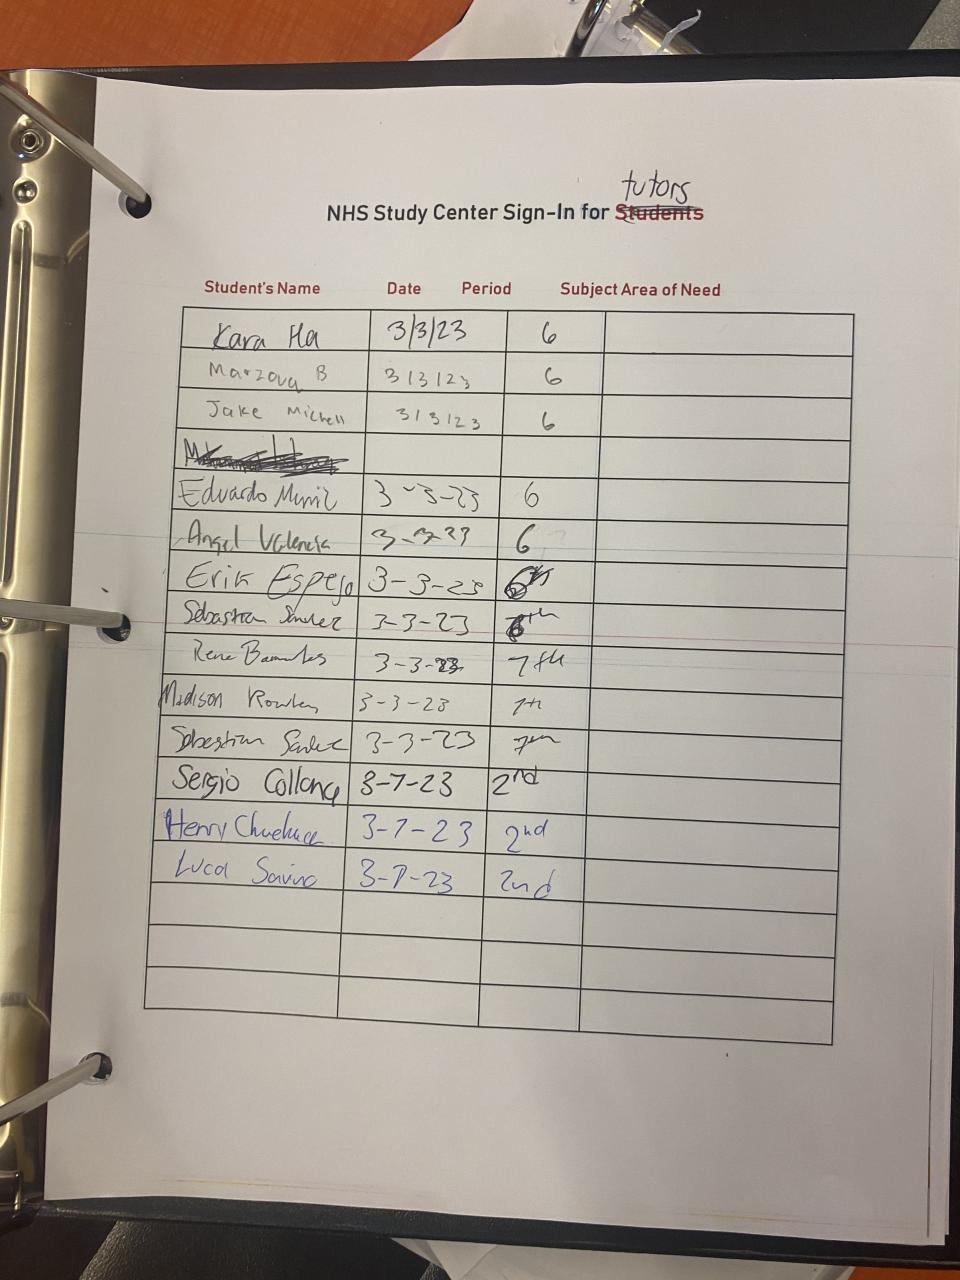 tutors
NHS Study Center Sign-In for Students
Student's Name Date Period Subject Area of Need
Kara Ha 3/3/23 6
B 3/3/23 6
Jake Michell 3/3/23 6
Eduardo Muniz 3-3-23 6
Angel Valencia 3-3-23 6
Erik Espejo 3-3-23 6th
Sebastian 3-3-23 6th
Rene 3-3-23 7th
Madison Rowley 3-3-23 7th
Sebastian 3-3-23 7th
Sergio 3-7-23 2nd
Henry 3-7-23 2nd
Luca Savino 3-7-23 2nd